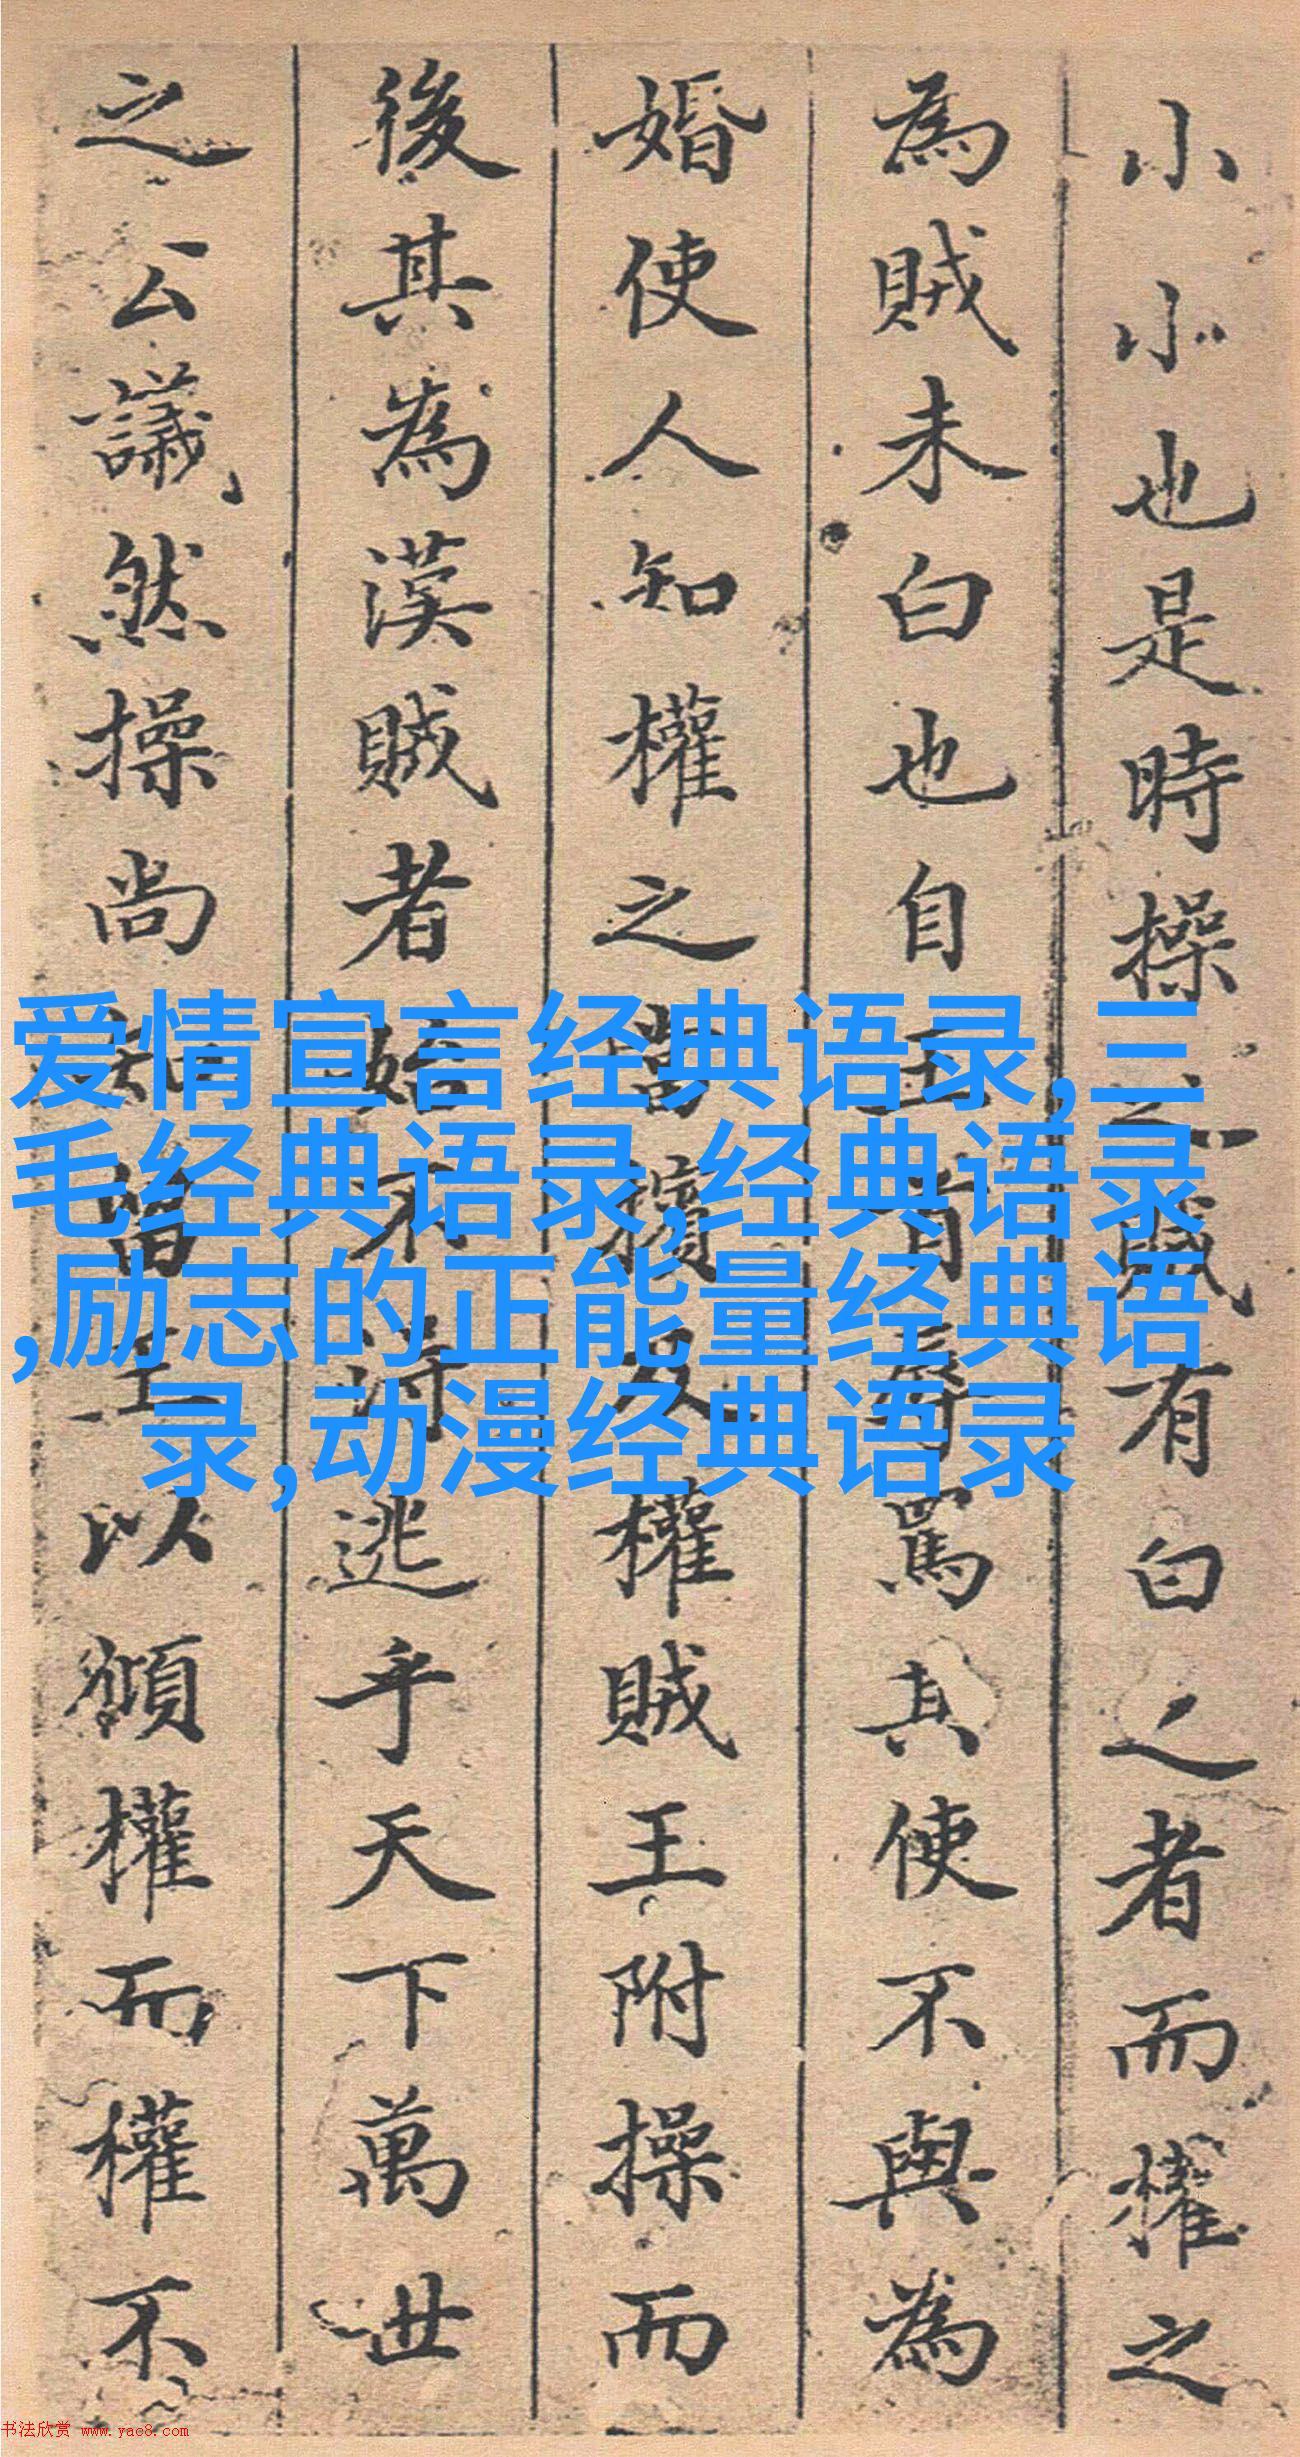 小小也是時操之賊有白之者而權之
為賊未白也自王罵其使不與為
婚使人知權之權賊王附操而
後其為漢賊者始不得逃乎天下萬世
之公議然操尚知留王以權而權不
爱情宣言经典语录,三
毛经典语录,经典语录
,励志的正能量经典语
录,动漫经典语录
书法欣赏 www.yac8.com